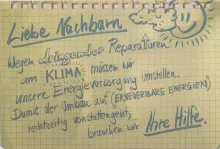 Liebe Nachbarn
Wegen Reparaturen
am KLIMA müssen wir
unsere Energieversorgung umstellen.
Damit der Umbau auf (ERNEUERBARE ENERGIEN)
rechtzeitig vonstattengeht,
brauchen wir Ihre Hilfe.